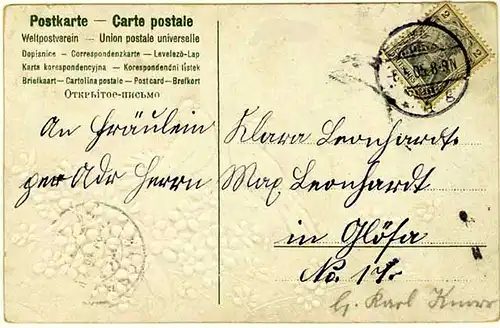 Postkarte — Carte postale
Weltpostverein — Union postale universelle
Dopisnice - Correspondenzkarte - Levelező-Lap
Karta korespondencyjna - Korespondenční lístek
Briefkaart - Cartolina postale - Postcard - Brefkort
Открытое-письмо
An Fräulein Klara Leonhardt
per Adr Herrn Max Leonhardt
in Glösa
No. 17
b. Karl